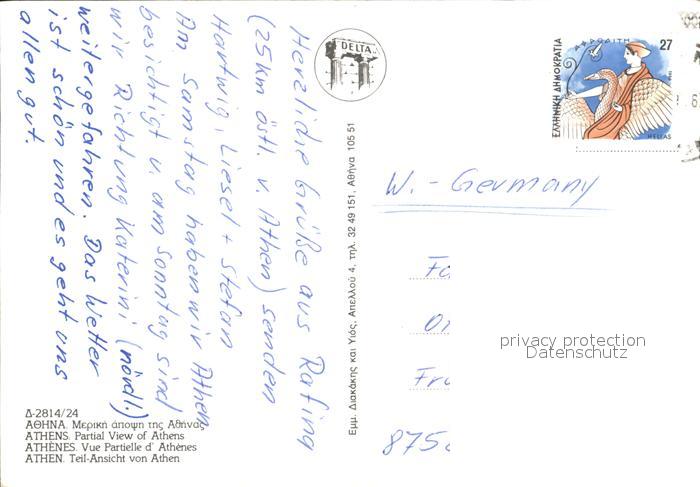 Herzliche Grüße aus Rafina
(25km östl. v. Athen) senden
Hartwig, Liesel + Stefan
Am Samstag haben wir Athen
besichtigt u. am Sonntag sind
wir Richtung Katerini (nördl.)
weitergefahren. Das Wetter
ist schön und es geht uns
allen gut.
Δ-2814/24
ΑΘΗΝΑ. Μερική άποψη της Αθήνας
ATHENS. Partial View of Athens
ATHÈNES. Vue Partielle d' Athènes
ATHEN. Teil-Ansicht von Athen
DELTA
Εμμ. Διακάκης και Υιός, Απελλού 4, τηλ. 32 49 151, Αθήνα 105 51
ΕΛΛΗΝΙΚΗ ΔΗΜΟΚΡΑΤΙΑ
ΑΦΡΟΔΙΤΗ
27
HELLAS
W. - Germany
Fa
Fru
875
privacy protection
Datenschutz